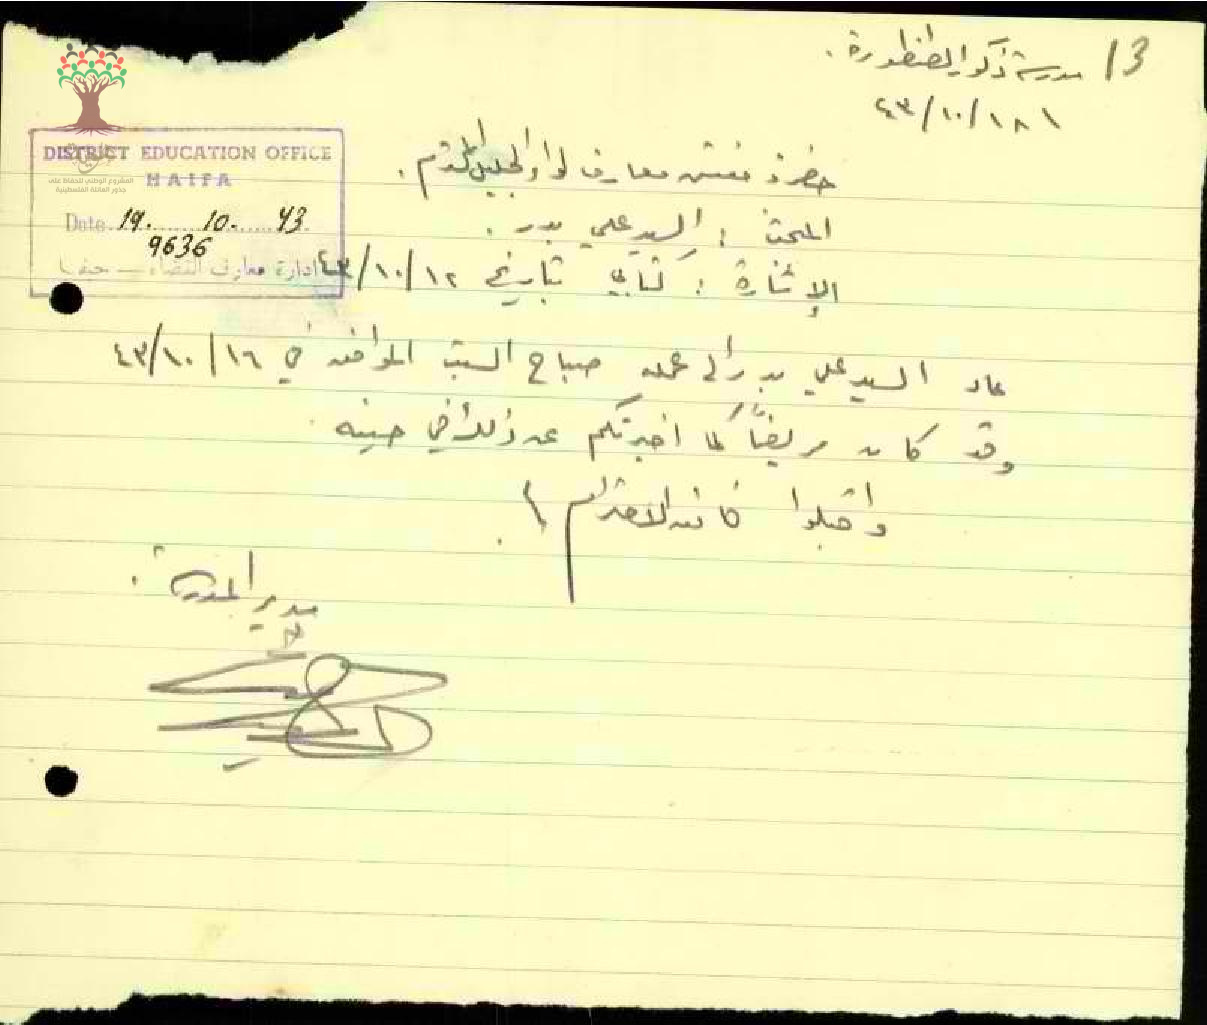 13
مدرسة ذكور الطنطورة.
٤٣/١٠/١٨
حضرة مفتش معارف لواء الجليل المحترم.
المبحث : السيد علي بدر.
الإشارة : كتابي بتاريخ ٤٣/١٠/١٢
عاد السيد علي بدر الى عمله صباح السبت الموافق في ٤٣/١٠/١٦
وقد كان مريضاً كما اخبرتكم عن ذلك في حينه.
واقبلوا فائق الاحترام
مدير المدرسة.
DISTRICT EDUCATION OFFICE
HAIFA
Date 19. 10. 43
9636
ادارة معارف القضاء — حيفا
المشروع الوطني للحفاظ على
جذور العائلة الفلسطينية